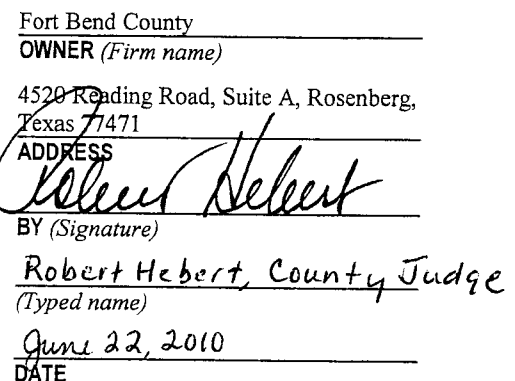 Fort Bend County
OWNER (Firm name)
4520 Reading Road, Suite A, Rosenberg,
Texas 77471
ADDRESS
Robert Hebert
BY (Signature)
Robert Hebert, County Judge
(Typed name)
June 22, 2010
DATE